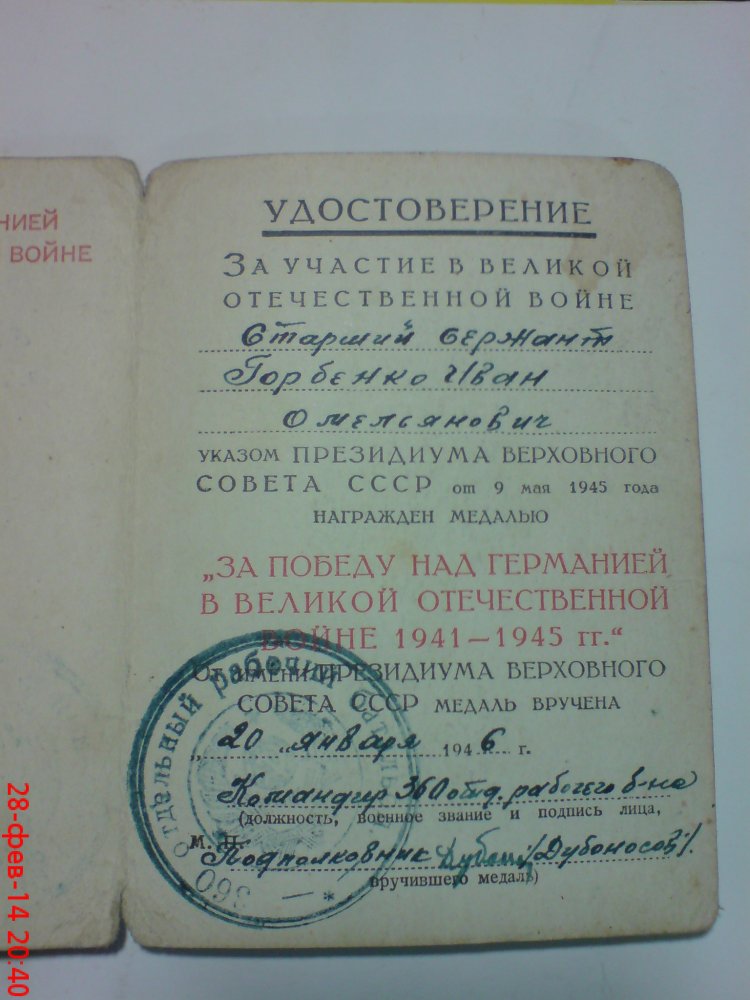 НИЕЙ
ВОЙНЕ
УДОСТОВЕРЕНИЕ
ЗА УЧАСТИЕ В ВЕЛИКОЙ
ОТЕЧЕСТВЕННОЙ ВОЙНЕ
Старший сержант
Горбенко Иван
Омельянович
УКАЗОМ ПРЕЗИДИУМА ВЕРХОВНОГО
СОВЕТА СССР от 9 мая 1945 года
НАГРАЖДЕН МЕДАЛЬЮ
„ЗА ПОБЕДУ НАД ГЕРМАНИЕЙ
В ВЕЛИКОЙ ОТЕЧЕСТВЕННОЙ
ВОЙНЕ 1941—1945 гг.“
От имени ПРЕЗИДИУМА ВЕРХОВНОГО
СОВЕТА СССР МЕДАЛЬ ВРУЧЕНА
„20„ января 1946 г.
Командир 360 отд. рабочего б-на
(должность, военное звание и подпись лица,
М. П.
Подполковник /Дубоносов/.
вручившего медаль)
360 отдельный рабочий
28-фев-14 20:40